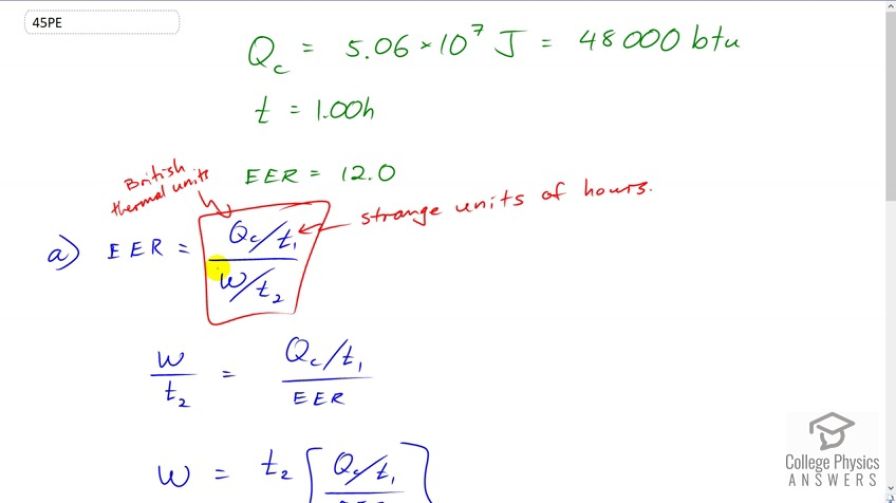 45PE
Qc = 5.06 × 10⁷ J = 48000 btu
t = 1.00h
EER = 12.0
British
thermal units
strange units of hours.
a) EER = (Qc/t₁)/(W/t₂)
W/t₂ = (Qc/t₁)/EER
W = t₂ [(Qc/t₁)/EER]
College Physics
ANSWERS